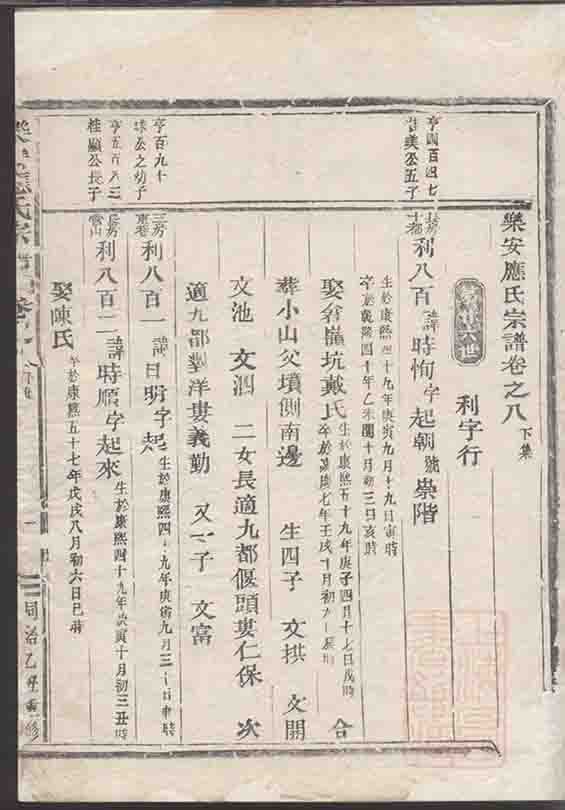 樂安應氏宗譜卷之八 下集
利字行
亨四百四七
美公五子
長房
利八百 諱時恂字起朝號崇階
生於康熙四十九年庚寅九月十九日寅時
卒於乾隆四十年乙未閏十月初三日亥時
娶翁嶺坑戴氏 生於康熙五十九年庚子四月十七日戌時
卒於嘉慶七年壬戌十月初九日辰時 合
葬小山父墳側南邊 生四子 文拱 文開
文池 文泗 二女長適九都偃頭婁仁保 次
適九都對洋婁義勤 又一子 文富
亨百九十
公之幼子
三房
利八百一 諱日昕字起
生於康熙四十九年庚寅九月三十日申時
亨五百八三
桂顯公長子
長房
利八百二 諱時順字起來
生於康熙四十九年庚寅十月初三丑時
娶陳氏 於康熙五十七年戊戌八月初六日巳時
同治乙丑重修